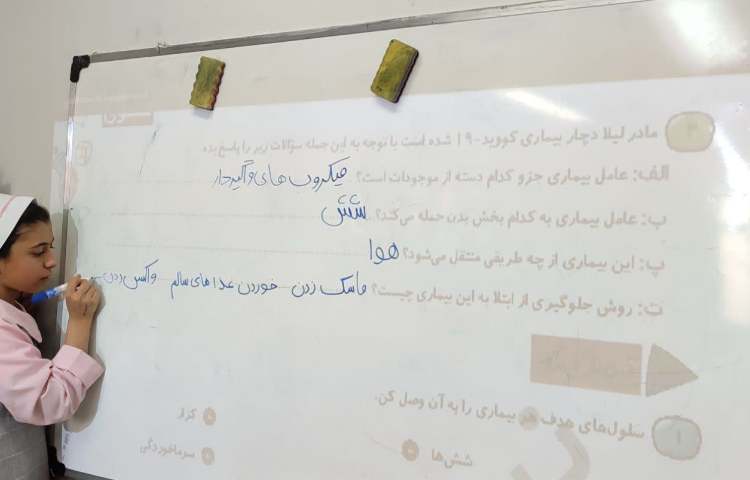 مادر لیلا دچار بیماری کووید-۱۹ شده است با توجه به این جمله سؤالات زیر را پاسخ بده.
الف: عامل بیماری جزو کدام دسته از موجودات است؟ میکروب های واگیردار
ب: عامل بیماری به کدام بخش بدن حمله می‌کند؟ شش
پ: این بیماری از چه طریقی منتقل می‌شود؟ هوا
ت: روش جلوگیری از ابتلا به این بیماری چیست؟ ماسک زدن خوردن غذا های سالم واکسن زدن
۱ سلول‌های هدف هر بیماری را به آن وصل کن.
شش‌ها کزاز
سرماخوردگی